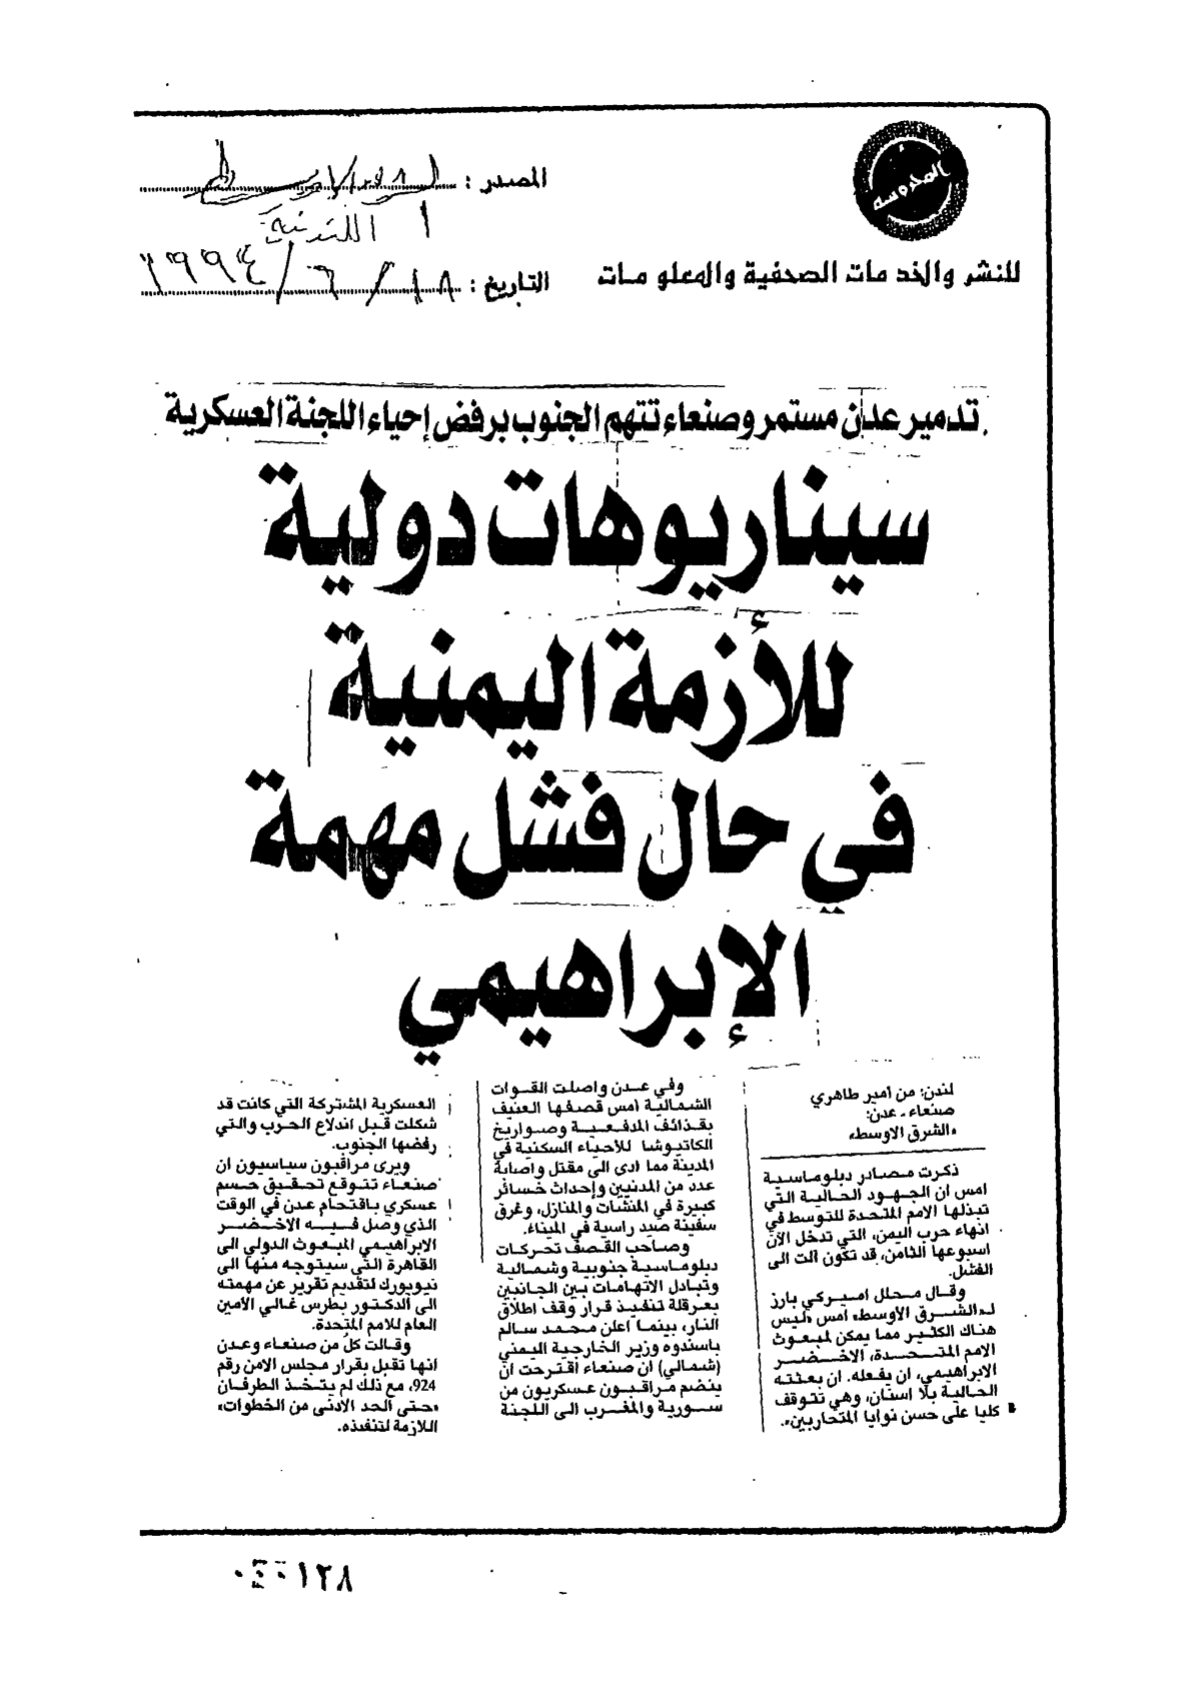 المحروسة
للنشر والخدمات الصحفية والمعلومات
المصدر : الشرق الأوسط
اللندنية
التاريخ : ١٨ / ٦ / ١٩٩٤
تدمير عدن مستمر وصنعاء تتهم الجنوب برفض إحياء اللجنة العسكرية
سيناريوهات دولية
للأزمة اليمنية
في حال فشل مهمة
الإبراهيمي
لندن: من امير طاهري
صنعاء ـ عدن:
«الشرق الاوسط»
ذكرت مصادر دبلوماسية
امس ان الجهود الحالية التي
تبذلها الامم المتحدة للتوسط في
انهاء حرب اليمن، التي تدخل الآن
اسبوعها الثامن، قد تكون آلت الى
الفشل.
وقال محلل اميركي بارز
لـ«الشرق الاوسط» امس «ليس
هناك الكثير مما يمكن لمبعوث
الامم المتحدة، الاخضر
الابراهيمي، ان يفعله. ان بعثته
الحالية بلا اسنان، وهي تتوقف
كليا على حسن نوايا المتحاربين».
وفي عدن واصلت القوات
الشمالية امس قصفها العنيف
بقذائف المدفعية وصواريخ
الكاتيوشا للأحياء السكنية في
المدينة مما ادى الى مقتل واصابة
عدد من المدنيين وإحداث خسائر
كبيرة في المنشآت والمنازل، وغرق
سفينة صيد راسية في الميناء.
وصاحب القصف تحركات
دبلوماسية جنوبية وشمالية
وتبادل الاتهامات بين الجانبين
بعرقلة تنفيذ قرار وقف اطلاق
النار، بينما اعلن محمد سالم
باسندوه وزير الخارجية اليمني
(شمالي) ان صنعاء اقترحت ان
ينضم مراقبون عسكريون من
سورية والمغرب الى اللجنة
العسكرية المشتركة التي كانت قد
شكلت قبل اندلاع الحرب والتي
رفضها الجنوب.
ويرى مراقبون سياسيون ان
صنعاء تتوقع تحقيق حسم
عسكري باقتحام عدن في الوقت
الذي وصل فيه الاخضر
الابراهيمي المبعوث الدولي الى
القاهرة التي سيتوجه منها الى
نيويورك لتقديم تقرير عن مهمته
الى الدكتور بطرس غالي الأمين
العام للامم المتحدة.
وقالت كل من صنعاء وعدن
انها تقبل بقرار مجلس الامن رقم
924، مع ذلك لم يتخذ الطرفان
«حتى الحد الادنى من الخطوات»
اللازمة لتنفيذه.